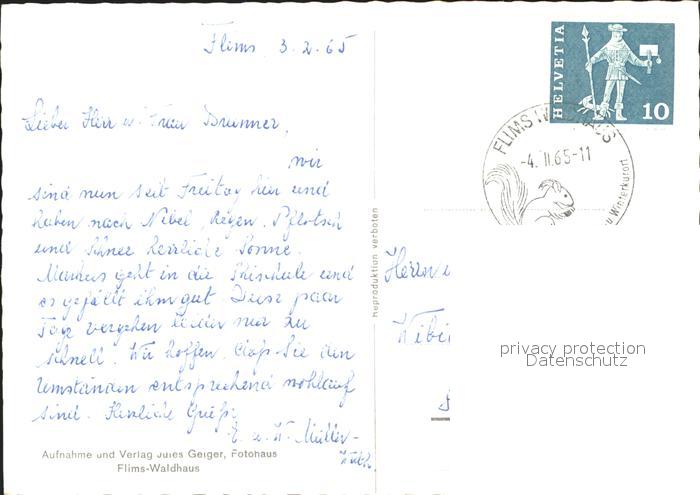 Flims, 3.2.65
Lieber Herr u. Frau Brunner,
wir
sind nun seit Freitag hier und
haben nach Nebel, Regen, Pflotsch
und Schnee herrliche Sonne.
Markus geht in die Skischule und
es gefällt ihm gut. Diese paar
Tage vergehen leider nur zu
schnell. Wir hoffen, dass Sie den
Umständen entsprechend wohlauf
sind. Herzliche Grüsse
E. u. W. Müller-
Aufnahme und Verlag Jules Geiger, Fotohaus
Flims-Waldhaus
Reproduktion verboten
HELVETIA
10
FLIMS WALDHAUS
-4. II. 65-11
u Winterkurort
Herrn
privacy protection
Datenschutz